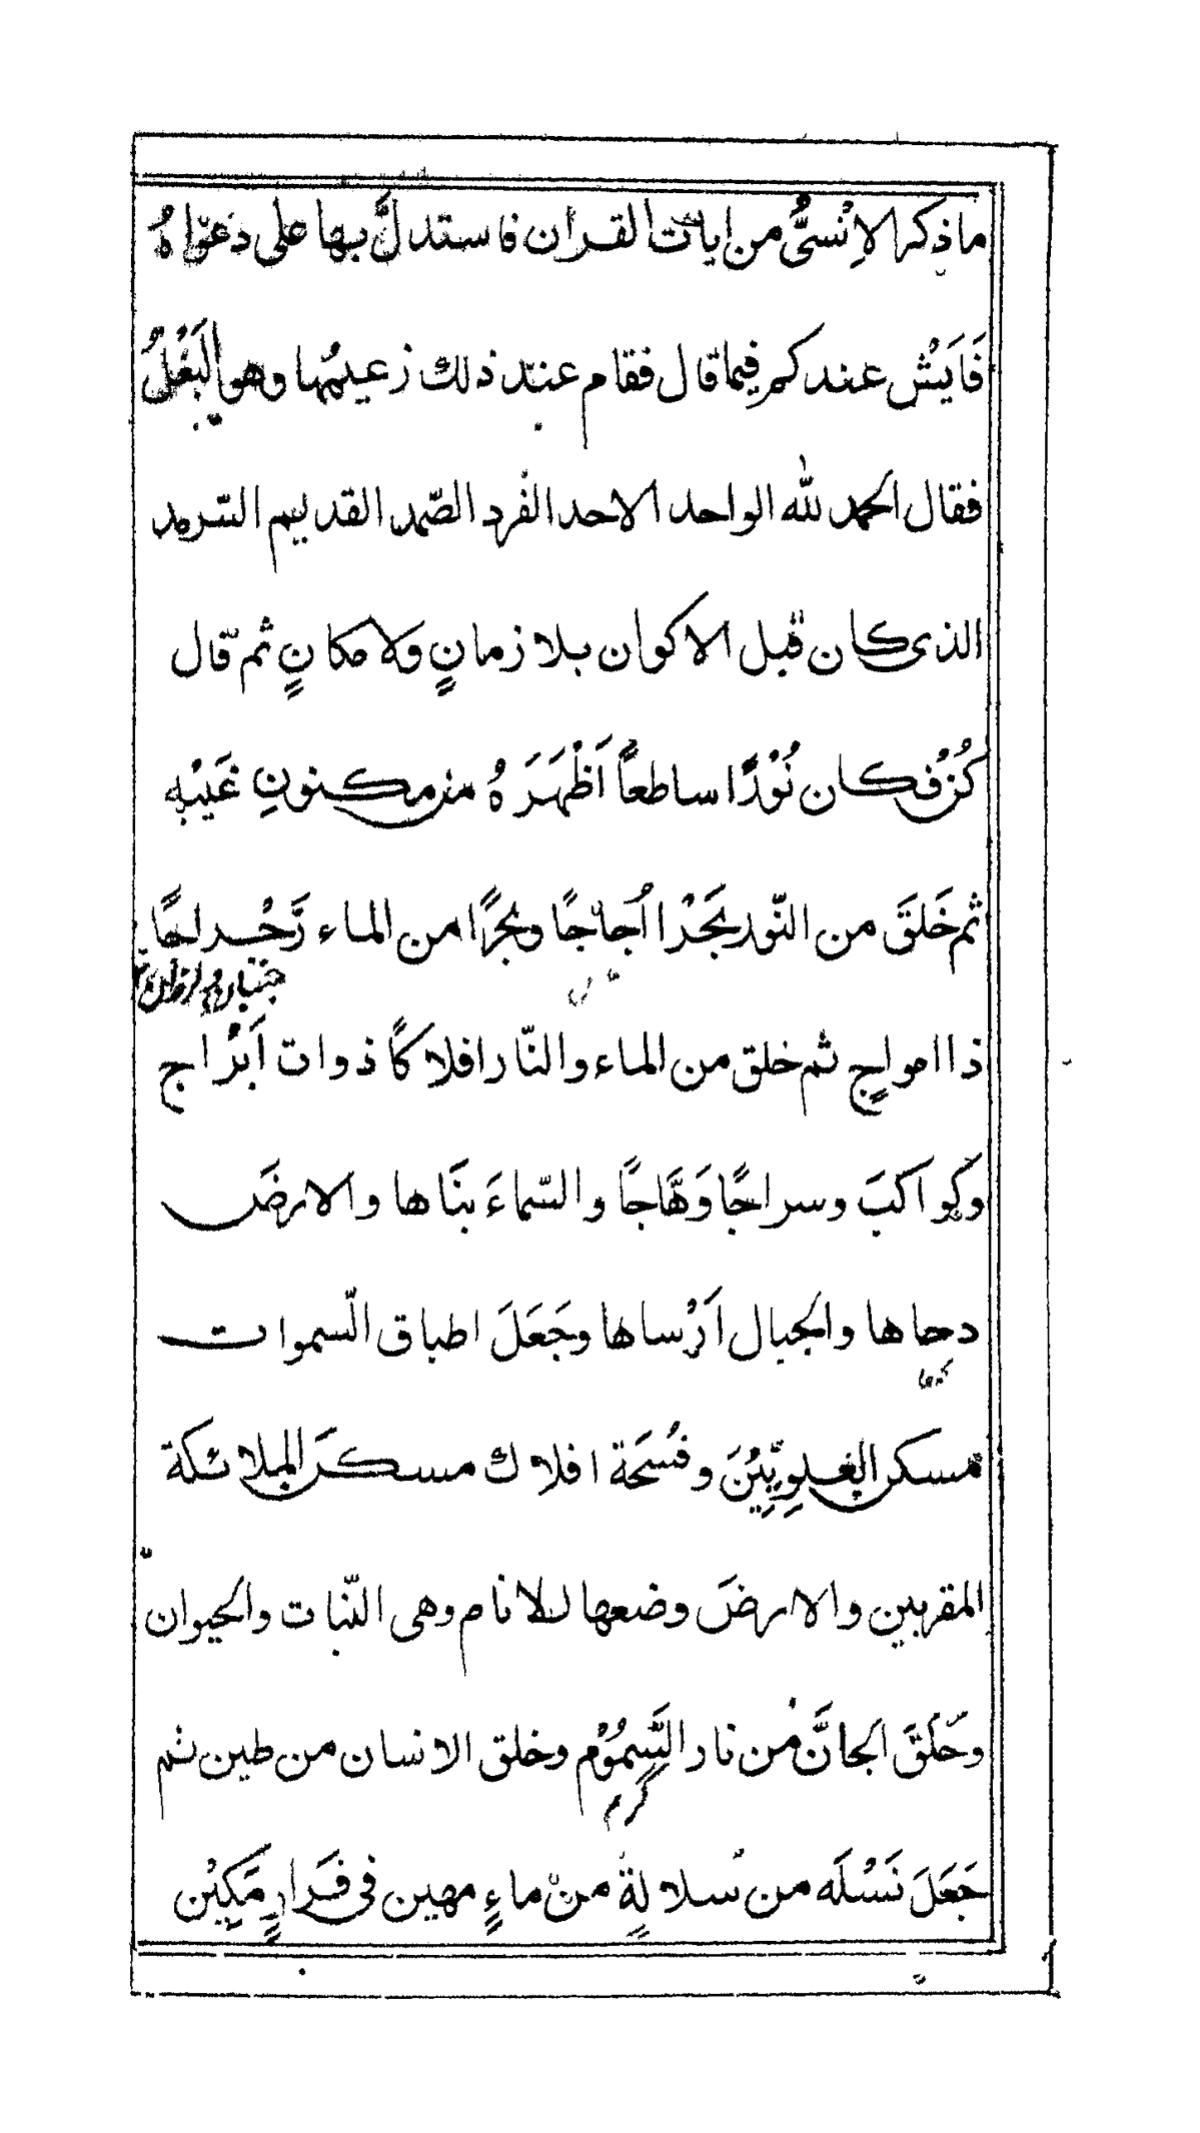 ماذكر الاِنْسىُّ من ايات القران فاستدلَّ بها على دعواهُ
فَاَيْش عندكم فيما قال فقام عند ذلك زعيمها وهو البَغْلُ
فقال الحمد لله الواحد الاحد الفرد الصّمد القديم السّرمد
الذى كان قبل الاكوان بلا زمانٍ ولا مكانٍ ثم قال
كُنْ فكان نُوْرًا ساطعاً اَظْهَرَهُ من مكنونِ غَيْبِه
ثم خَلَقَ من النّور بَحْرًا اُجاجًا وبحرًا من الماء رَجْراجًا
ذا امواجٍ ثم خلق من الماء والنّار افلاكًا ذوات اَبْراج
وكواكبَ وسراجًا وَهَّاجًا والسّماءَ بنَاها والارضَ
دحاها والجبال اَرْساها وجَعَلَ اطباق السّموات
مسكن العلويِّيْنَ وفُسْحَة افلاك مسكنَ الملائكة
المقربين والارضَ وضعها للانام وهى النّبات والحيوان
وخَلَقَ الجانَّ من نار السَّمُوْم وخلق الانسان من طين ثم
گرم
جَعَلَ نَسْلَه من سلالةٍ منْ ماءٍ مهين فى قَرارٍ مَّكِيْن